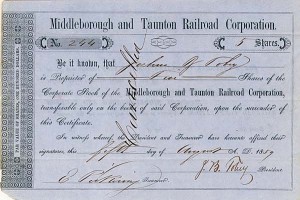 Middleborough and Taunton Railroad Corporation.
No. 244 5 Shares.
Be it known, that
is Proprietor of Five Shares of the
Corporate Stock of the Middleborough and Taunton Railroad Corporation,
transferable only on the books of said Corporation, upon the surrender of
this Certificate.
In witness whereof, the President and Treasurer have hereunto affixed their
signatures, this fifth day of August A. D. 1859
Treasurer J. B. President
PAR VALUE ONE HUNDRED DOLLARS.
Cancelled